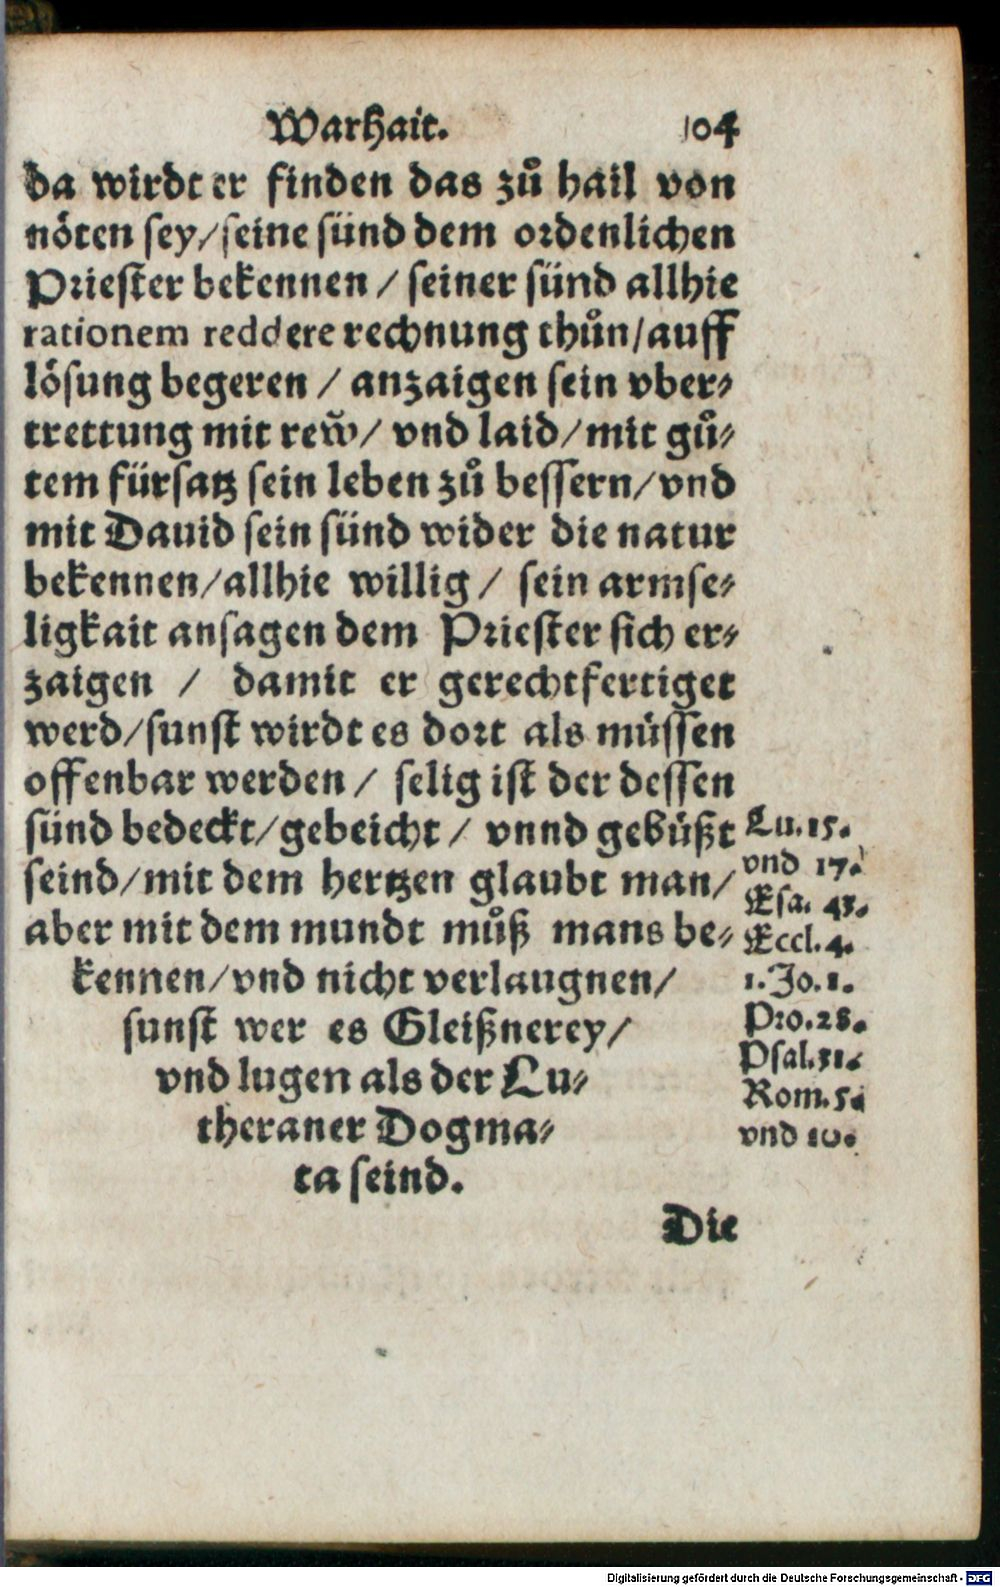 Warhait. 104
da wirdt er finden das zů hail von
nöten sey/seine sünd dem ordenlichen
Priester bekennen / seiner sünd allhie
rationem reddere rechnung thůn/auff
lösung begeren / anzaigen sein vber⸗
trettung mit rew̃/ vnd laid/mit gů⸗
tem fürsatz sein leben zů bessern/vnd
mit Dauid sein sünd wider die natur
bekennen/allhie willig / sein armse⸗
ligkait ansagen dem Priester sich er⸗
zaigen / damit er gerechtfertiget
werd/sunst wirdt es dort als müssen
offenbar werden / selig ist der dessen
sünd bedeckt/gebeicht / vnnd gebüßt
seind/mit dem hertzen glaubt man/
aber mit dem mundt můß mans be⸗
kennen/vnd nicht verlaugnen/
sunst wer es Gleißnerey/
vnd lugen als der Lu⸗
theraner Dogma⸗
ta seind.
Lu. 15.
vnd 17.
Esa. 43.
Eccl. 4.
1. Jo. 1.
Pro. 28.
Psal. 31.
Rom. 5.
vnd 10.
Die
Digitalisierung gefördert durch die Deutsche Forschungsgemeinschaft - DFG